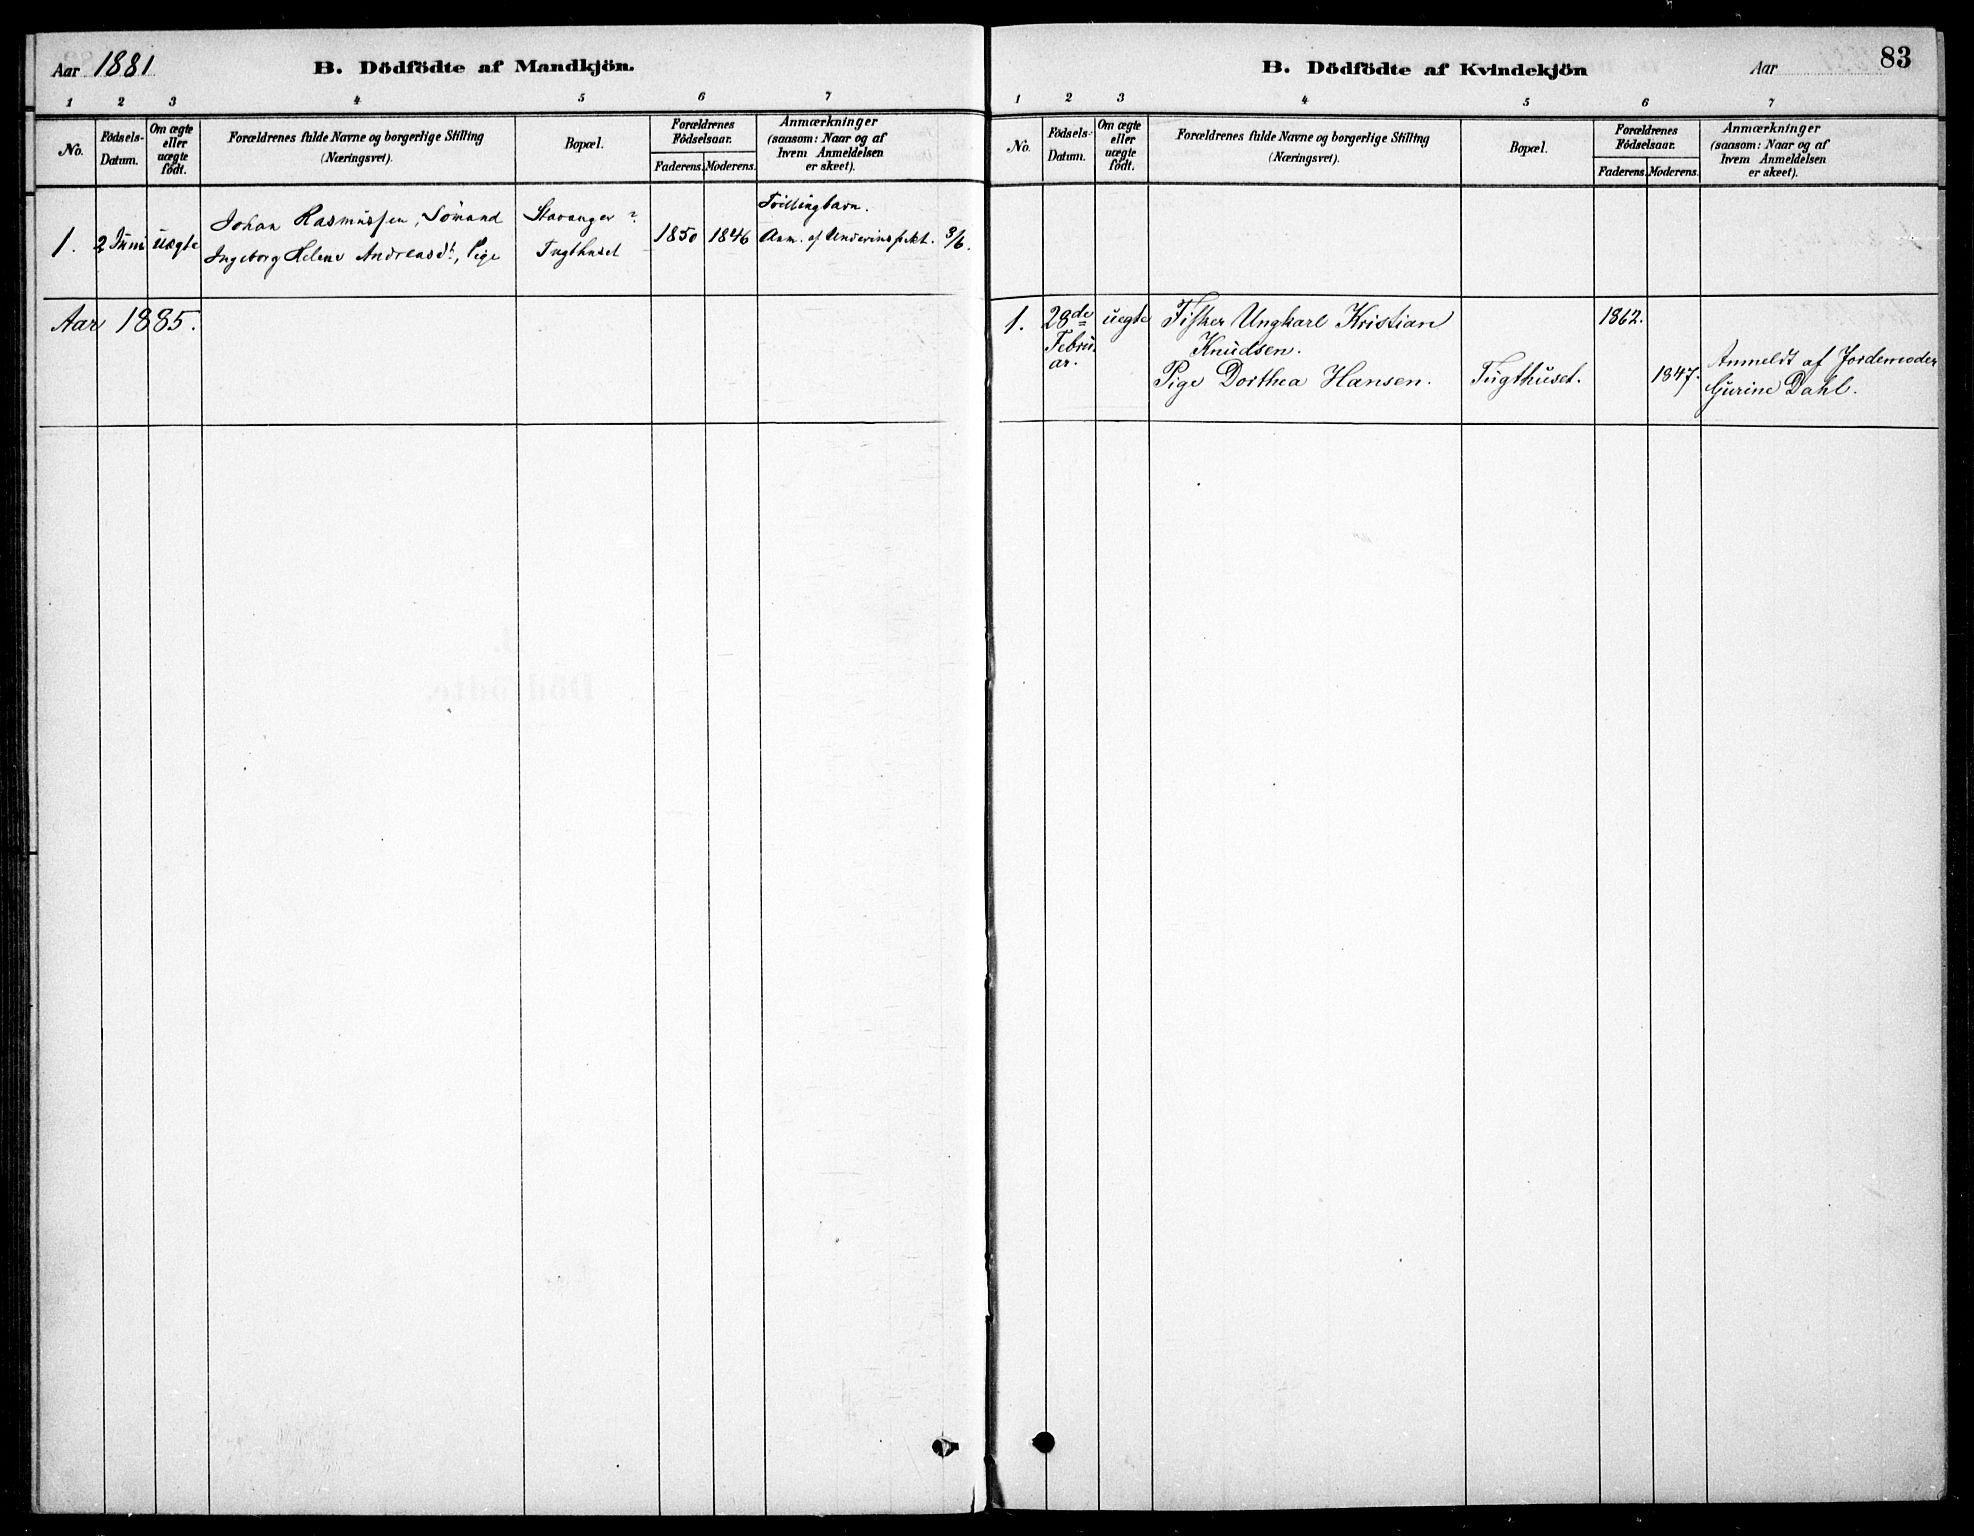 Aar 1881
B. Dödfödte af Mandkjön.
1 2 3 4 5 6 7
No.
Födsels-
Datum.
Om ægte
eller
uægte
födt.
Forældrenes fulde Navne og borgerlige Stilling
(Næringsvei).
Bopæl.
Forældrenes
Födselsaar.
Faderens. Moderens.
Anmærkninger
(saasom: Naar og af
hvem Anmeldelsen
er skeet).
1. 2 Juni uægte
Johan Rasmussen, Sömand
Ingeborg Helene Andreasdt., Pige
Stavanger ?
Tugthuset
1850 1846
Tvillingbarn.
Anm. af Underinspekt. 3/6.
Aar 1885.
B. Dödfödte af Kvindekjön
Aar
83
1 2 3 4 5 6 7
No.
Födsels-
Datum.
Om ægte
eller
uægte
födt.
Forældrenes fulde Navne og borgerlige Stilling
(Næringsvei).
Bopæl.
Forældrenes
Födselsaar.
Faderens. Moderens.
Anmærkninger
(saasom: Naar og af
hvem Anmeldelsen
er skeet).
1. 28de
Febru
ar.
uegte
Fisker Ungkarl Kristian
Knudsen.
Pige Dorthea Hansen.
Tugthuset.
1862.
1847.
Anmeldt af Jordemoder
Gurine Dahl.